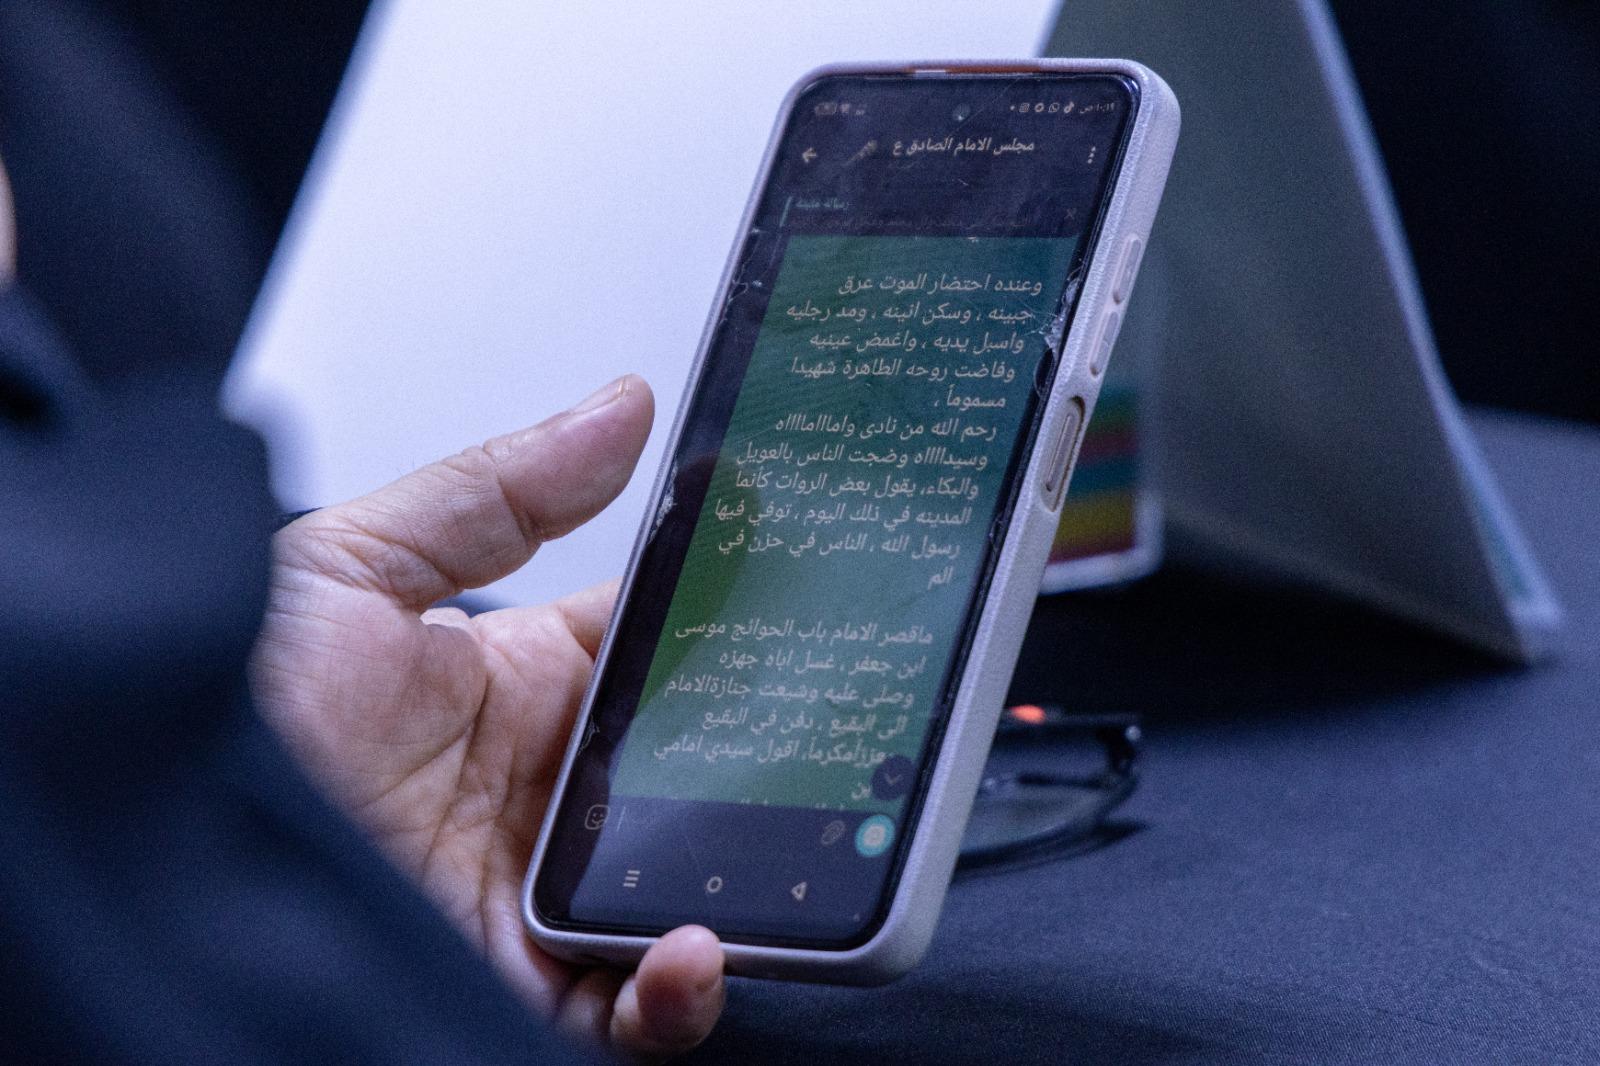 ١٠:١٩ ص
مجلس الامام الصادق ع
رسالة مثبتة
وعنده احتضار الموت عرق
جبينه ، وسكن انينه ، ومد رجليه
واسبل يديه ، واغمض عينيه
وفاضت روحه الطاهرة شهيدا
مسموماً ،
رحم الله من نادى وامااامااااه
وسيدااااه وضجت الناس بالعويل
والبكاء، يقول بعض الروات كأنما
المدينه في ذلك اليوم ، توفي فيها
رسول الله ، الناس في حزن في
الم
ماقصر الامام باب الحوائج موسى
ابن جعفر ، غسل اباه جهزه
وصلى عليه وشيعت جنازةالامام
الى البقيع ، دفن في البقيع
معززاًمكرماً، اقول سيدي امامي